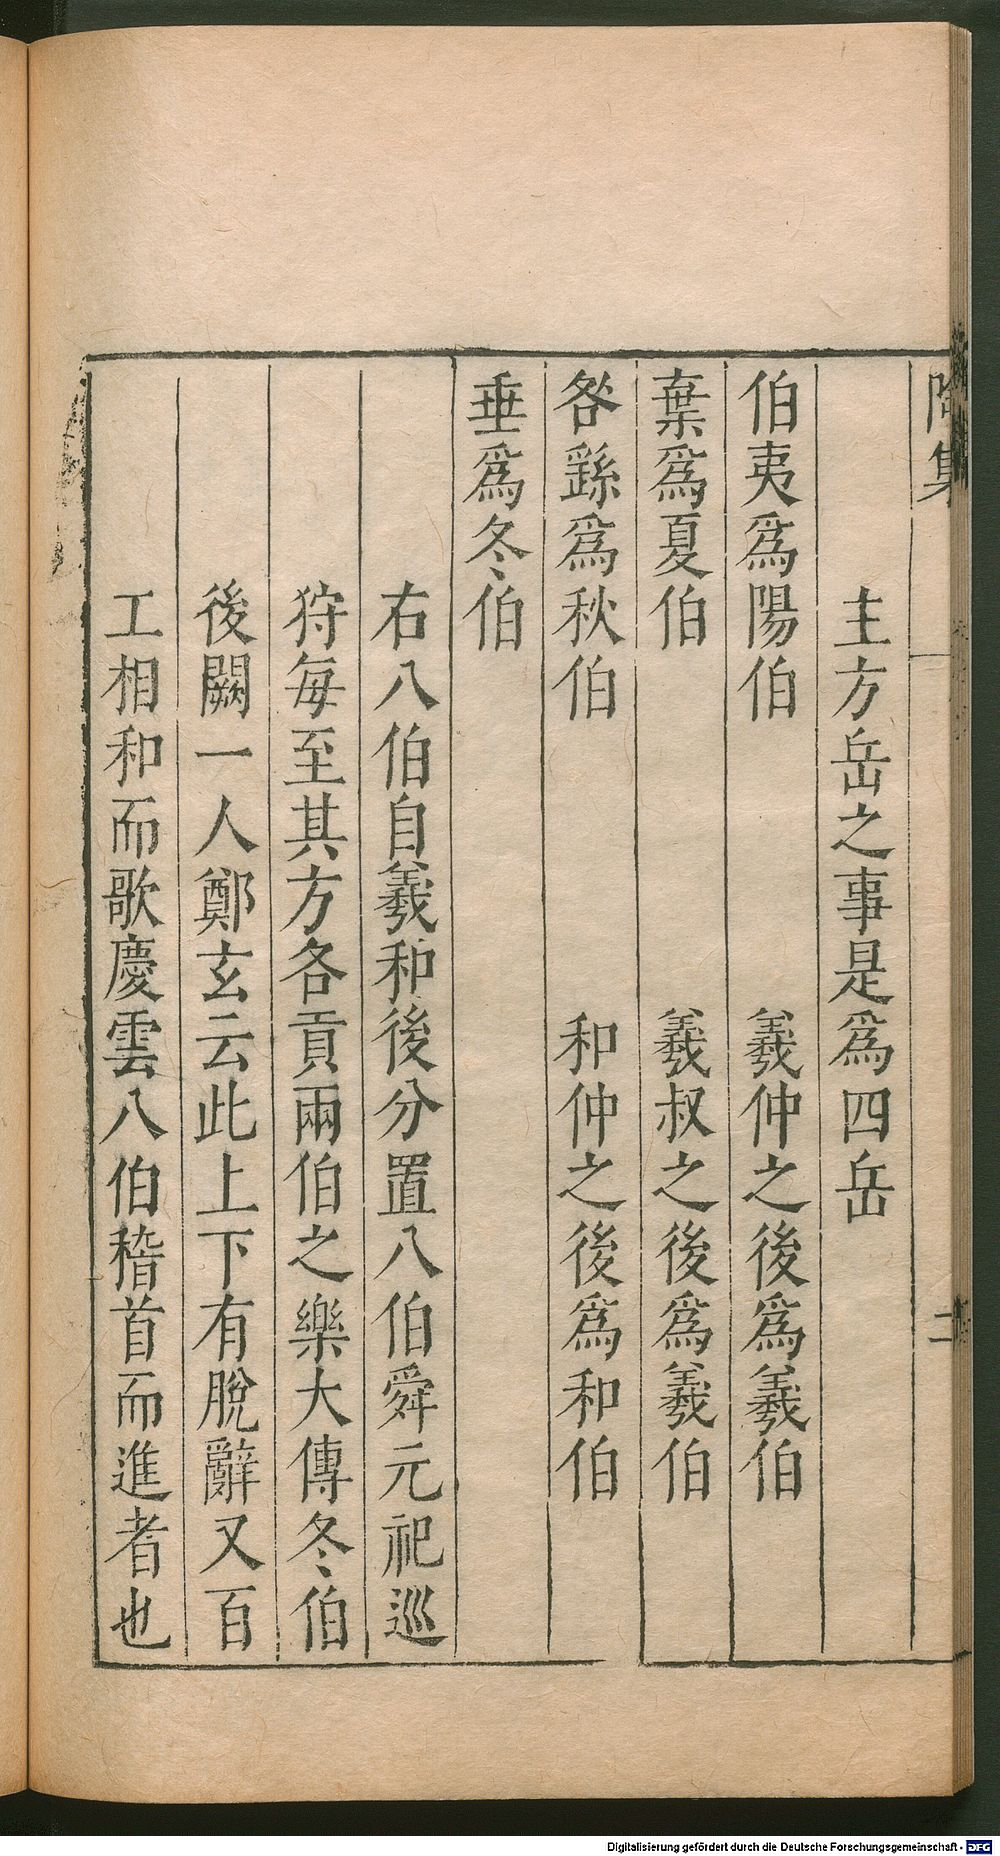 陶集
主方岳之事是爲四岳
伯夷爲陽伯　羲仲之後爲羲伯
棄爲夏伯　羲叔之後爲羲伯
咎繇爲秋伯　和仲之後爲和伯
垂爲冬伯
右八伯自羲和後分置八伯舜元祀巡
狩每至其方各貢兩伯之樂大傳冬伯
後闕一人鄭玄云此上下有脫辭又百
工相和而歌慶雲八伯稽首而進者也
Digitalisierung gefördert durch die Deutsche Forschungsgemeinschaft - DFG